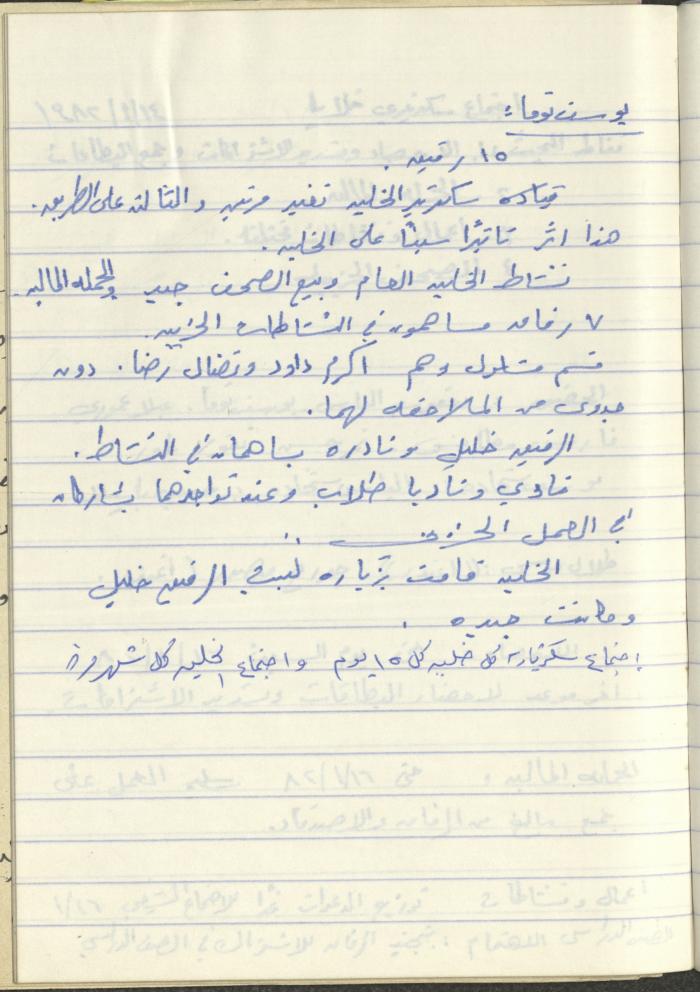 يوسف توما:
١٥ رفيق.
قيادة سكرتير الخليه تغير مرتين والثالثه على الطريق.
هذا اثر تاثيرًا سيئًا على الخليه.
نشاط الخليه العام وبيع الصحف جيد والحمله الماليه.
٧ رفاق مساهمون في النشاطات الحزبيه
قسم مشلول وهم اكرم داود ونضال رضا. دون
جدوى من الملاحقه لهما.
الرفيق خليل ونادره يساهمان في النشاط.
فادي وناديا طلاب وعند تواجدهما يشاركان
في العمل الحزبي
الخليه قامت بزياره لبيت الرفيق خليل
وكانت جيده.
اجتماع سكرتاريه كل خليه كل ١٥ يوم واجتماع الخليه كل شهر مرة